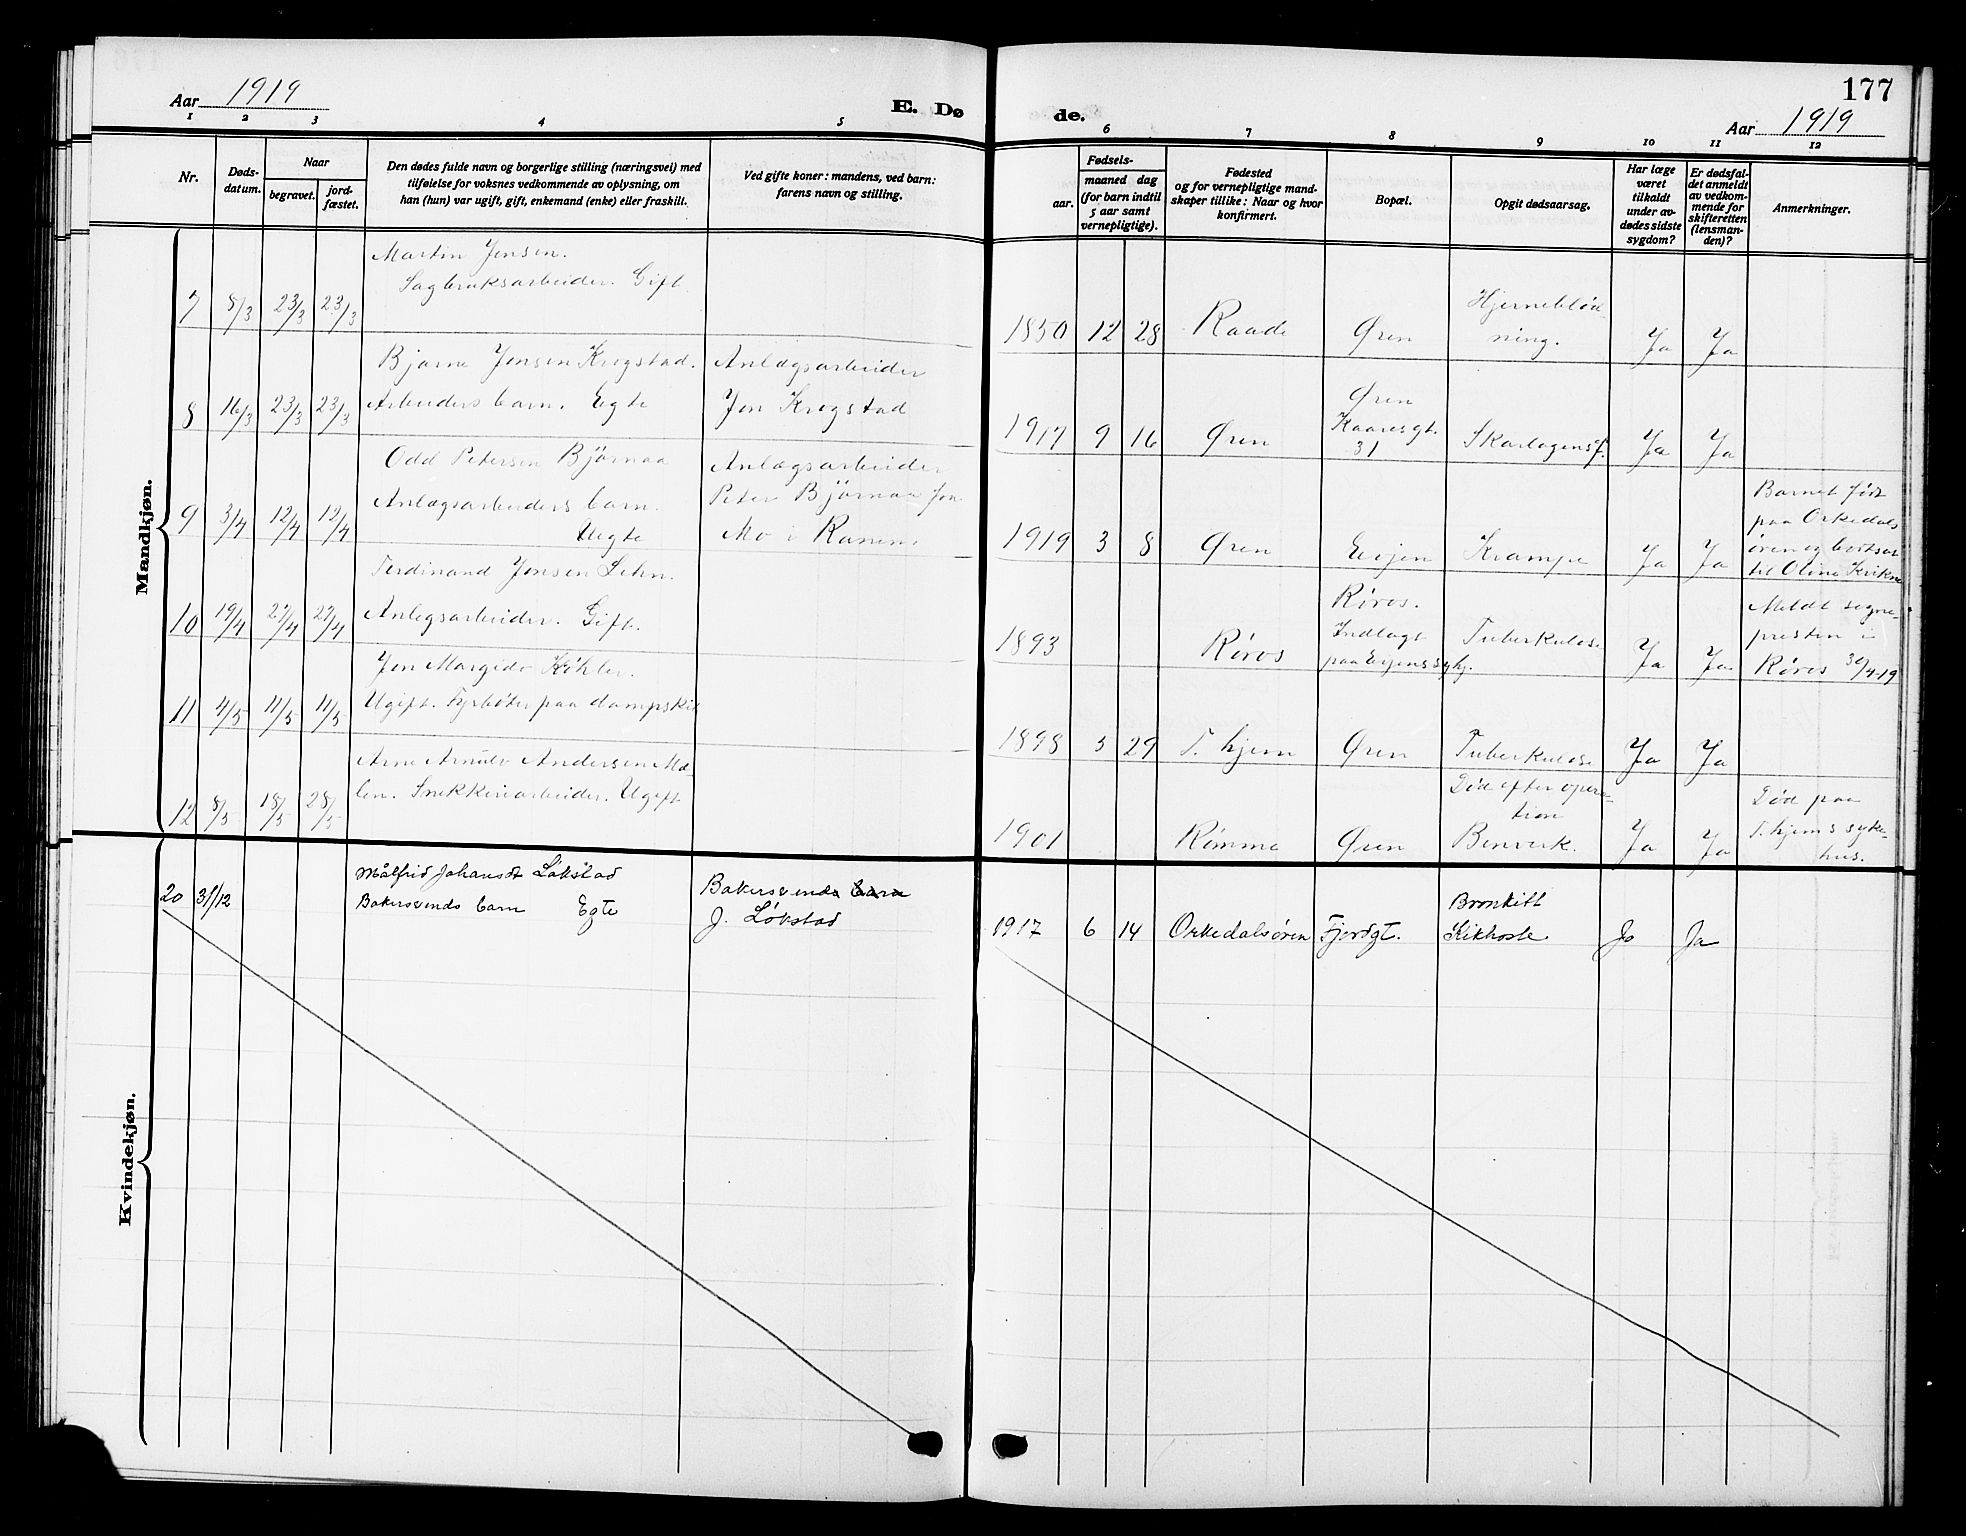 177
Aar 1919
E. Dø
de.
Aar 1919
1 2 3 4 5 6 7 8 9 10 11 12
Nr.
Døds-
datum.
Naar
begravet.
jord-
fæstet.
Den dødes fulde navn og borgerlige stilling (næringsvei) med
tilføielse for voksnes vedkommende av oplysning, om
han (hun) var ugift, gift, enkemand (enke) eller fraskilt.
Ved gifte koner: mandens, ved barn:
farens navn og stilling.
Fødsels-
aar.
maaned dag
(for barn indtil
5 aar samt
vernepligtige).
Fødested
og for vernepligtige mand-
skaper tillike: Naar og hvor
konfirmert.
Bopæl.
Opgit dødsaarsag.
Har læge
været
tilkaldt
under av-
dødes sidste
sygdom?
Er dødsfal-
det anmeldt
av vedkom-
mende for
skifteretten
(lensman-
den)?
Anmerkninger.
Mandkjøn.
Martin Jensen.
Sagbruksarbeider. Gift.
7 8/3 23/3 23/3
Hjerneblød-
1850 12 28 Raade Øren ning. Ja Ja
Bjarne Jonsen Krogstad. Anlægsarbeider
8 16/3 23/3 23/3 Arbeiders barn. Egte Jon Krogstad
Øren
Kaaresgt.
1917 9 16 Øren 31 Skarlagensf. Ja Ja
Odd Petersen Bjørnaa Anlægsarbeider
Anlægsarbeiders barn. Peter Bjørnaa fra
9 3/4 12/4 12/4 Uegte Mo i Ranen.
Barnet født
paa Orkedals
1919 3 8 Øren Evjen Krampe Ja Ja øren og bortsat
til Oline Krikne
Ferdinand Jonsen Lehn.
10 19/4 27/4 27/4 Anlegsarbeider. Gift.
Røros. Meldt sogne-
Indlagt presten i
1893 Røros paa Evjens sykj. Tuberkulose Ja Ja Røros 30/4-19
Jon Margido Køhler.
11 4/5 11/5 11/5 Ugift. Fyrbøter paa dampskib
1898 5 29 T.hjem Øren Tuberkulose Ja Ja
Arne Arnulv Andersen Mæ-
12 8/5 18/5 28/5 len. Snekkeriarbeider. Ugift
Død efter opera-
tion Død paa
1901 Rømme Øren Benverk. Ja Ja T.hjems syke-
hus.
Kvindekjøn.
Målfrid Johansdt Løkstad Bakersvends barn
20 31/12 Bakersvends barn Egte J. Løkstad
Bronkitt
1917 6 14 Orkedalsøren Fjordgt. Kikhoste Ja Ja